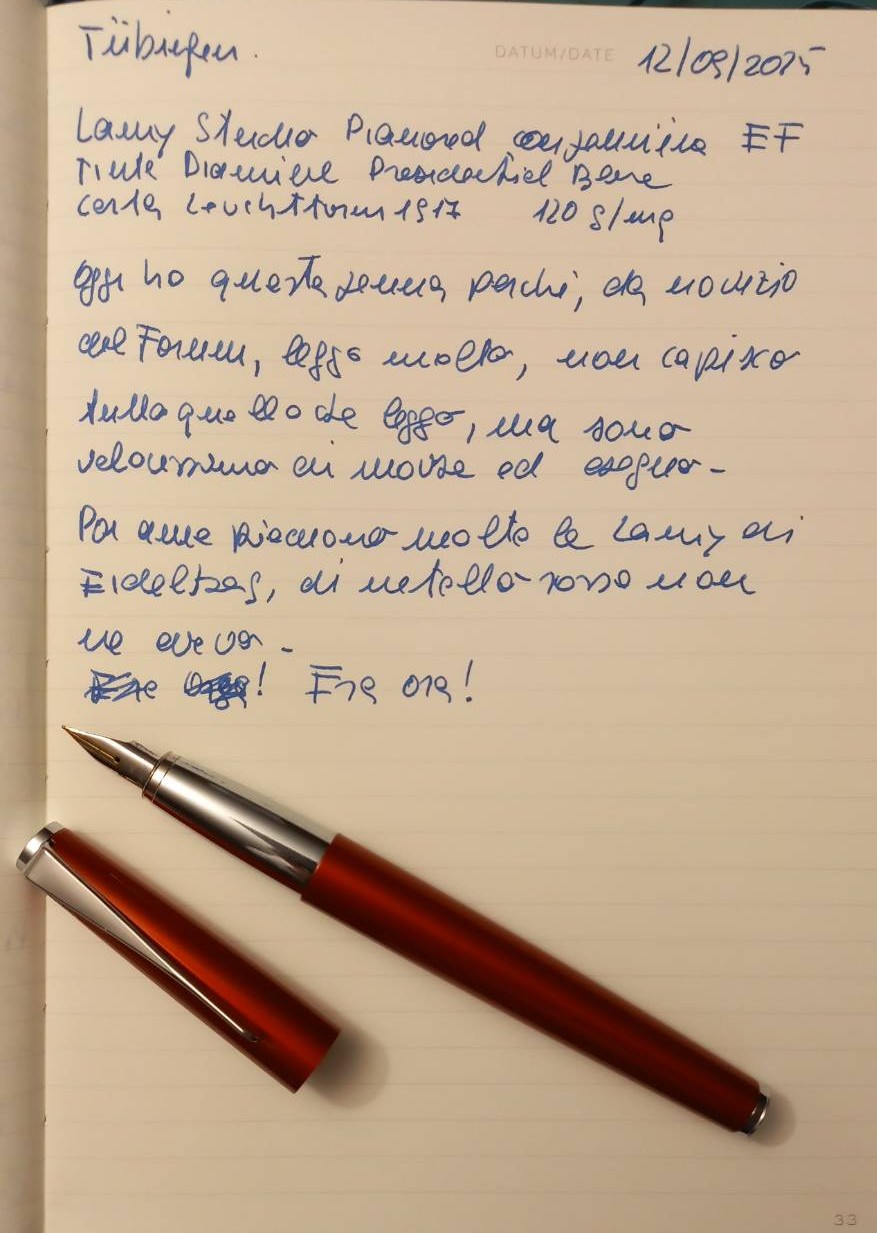 Tübingen. DATUM/DATE 12/09/2025
Lamy Studio Pianored con pennino EF
Tinta Diamine Presidential Blue
carta Leuchtturm 1917 120 g/mq
oggi ho questa penna perché, da novizio
del Forum, leggo molto, non capisco
tutto quello che leggo, ma sono
velocissimo di mouse ed eseguo -
Poi a me piacciono molto le Lamy di
Eidelberg, di metallo rosso non
ne avevo -
Era ora! Era ora!
33